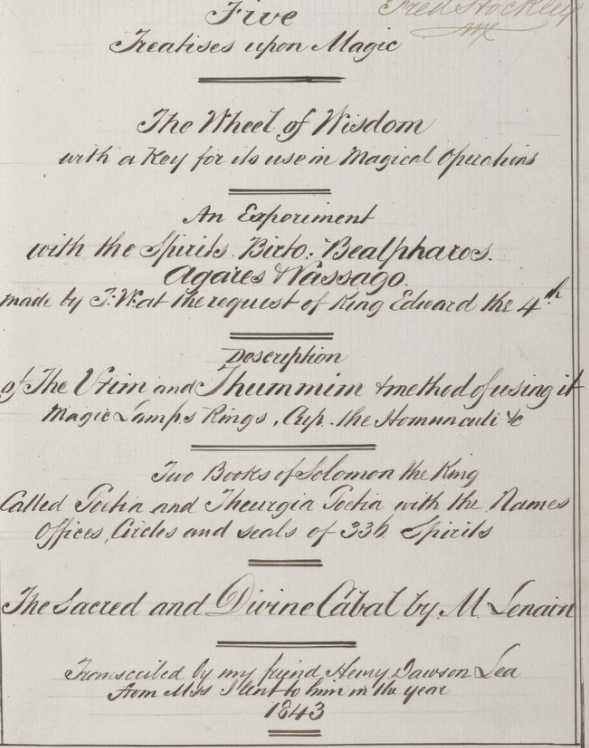 Fred Hockley
Five
Treatises upon Magic
The Wheel of Wisdom
with a Key for its use in Magical Operations
An Experiment
with the Spirits Birto: Bealpharos.
Agares & Vassago
made by T.W. at the request of King Edward the 4th
Description
of The Urim and Thummim & method of using it
Magic Lamps Rings, Cup. the Homunculi &c
Two Books of Solomon the King
Called Goetia and Theurgia Goetia with the Names
Offices, Circles and seals of 336 Spirits
The Sacred and Divine Cabal by M Lenain
Transcribed by my friend Henry Dawson Lea
from Mss I lent to him in the year
1843